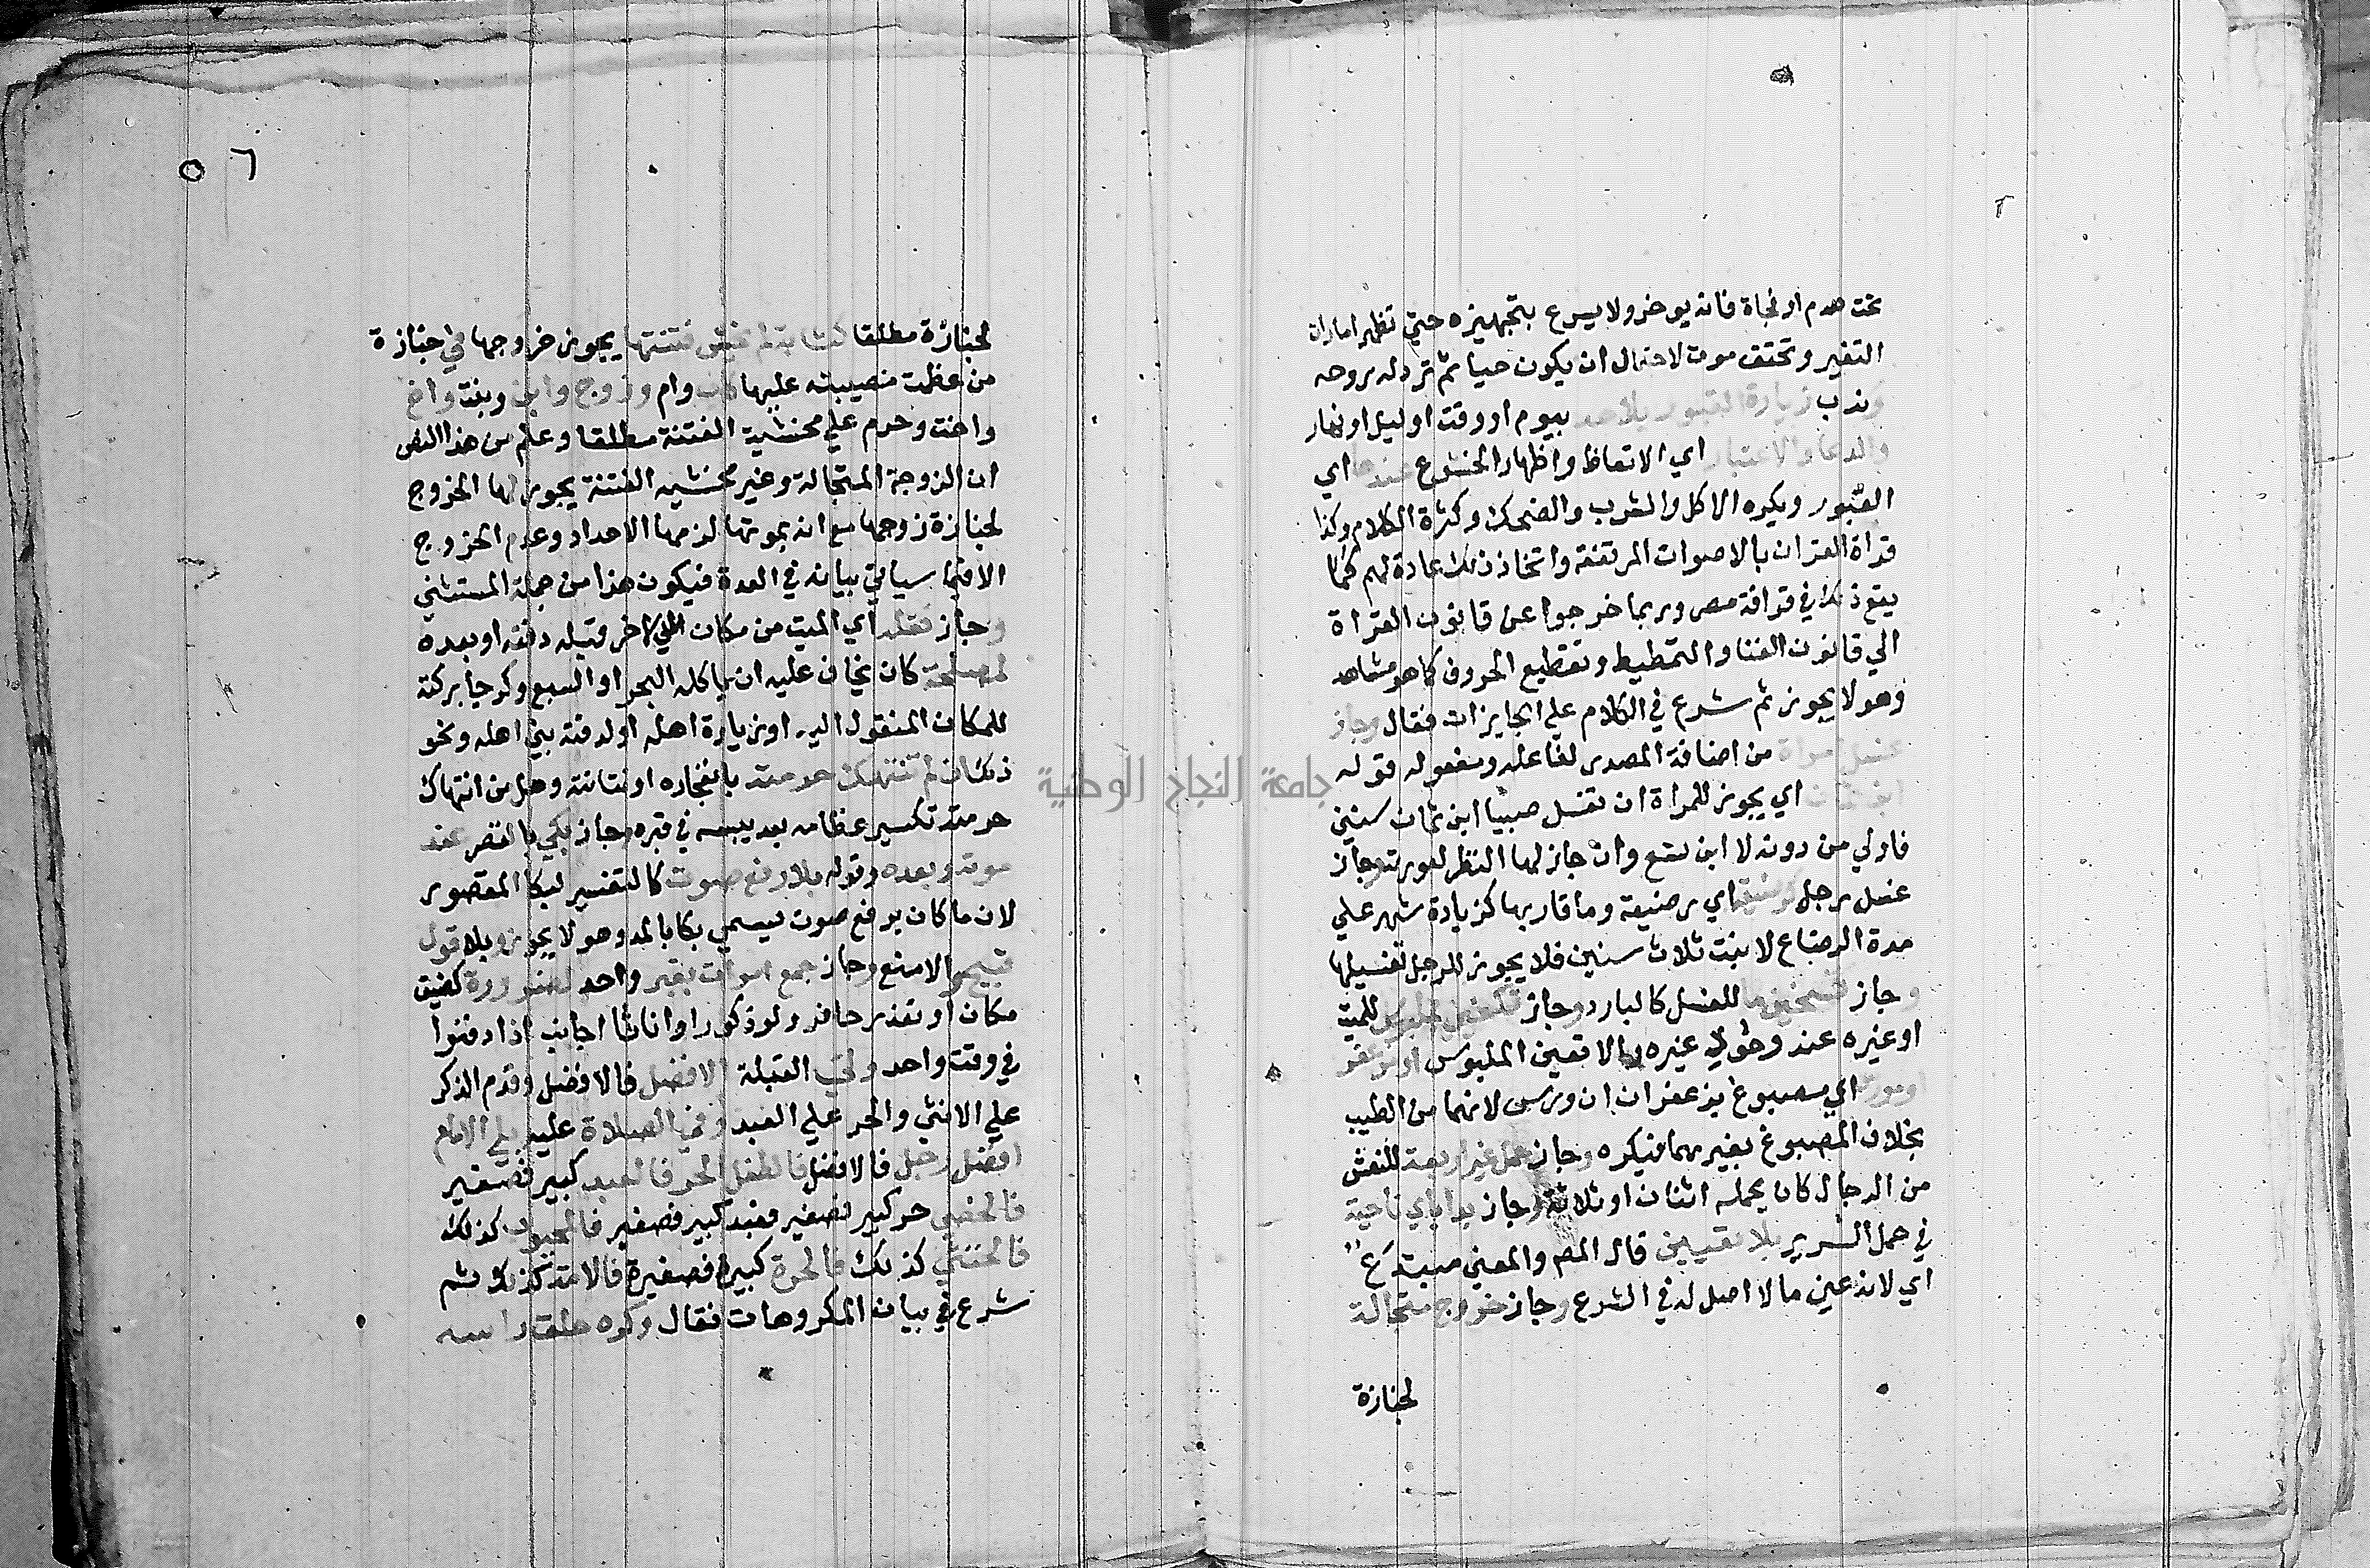 تحت هدم او فجاة فانه يوخر ولا يسرع بتجهيزه حتي تظهر امارات
التغير وتحقق موت لاحتمال ان يكون حيا ثم ترد له روحه
وندب زيارة القبور بلا حد بيوم او وقت او ليل او نهار
والدعا والاعتبار اي الاتعاظ واظهار الخشوع عندها اي
القبور ويكره الاكل والشرب والضحك وكثرة الكلام وكذا
قراة القران بالاصوات المرتفعة واتخاذ ذلك عادة لهم كما
يقع ذلك في قرافة مصر وربما خرجوا عن قانون القراة
الي قانون الغنا والتمطيط وتقطيع الحروف كما هو مشاهد
وهو لا يجوز ثم شرع في الكلام علي الجايزات فقال وجاز
غسل امراة من اضافة المصدر لفاعله ومفعوله قوله
ابن ثمان اي يجوز للمراة ان تغسل صبيا ابن ثمان سنين
فاولي من دونه لا ابن تسع وان جاز لها النظر لعورته وجاز
غسل رجل كرضيعة اي رضيعة وما قاربها كزيادة شهر علي
مدة الرضاع لا بنت ثلاث سنين فلا يجوز للرجل تغسيلها
وجاز تسخين ما للغسل كالبارد وجاز تكفين بملبوس للميت
او غيره عند غيره الملبوس او مزعفر
او مورس اي مصبوغ بزعفران ان ورس لانهما من الطيب
بخلاف المصبوغ بغيرهما فيكره وجاز حمل غير اربعة للنعش
من الرجال كان يحمله اثنان او ثلاثة وجاز بدا باي ناحية
في حمل السرير بلا تعيين قال المص والمعين مبتدع
اي لانه عين ما لا اصل له في الشرع وجاز خروج متجالة
لجنازة
٥٦
لجنازة مطلقا كشابة لم تخش فتنتها يجوز خروجها في جنازة
من عظمت مصيبته عليها كاب وام وزوج وابن وبنت واخ
واخت وحرم علي مخشية الفتنة مطلقا وعلم من هذا النص
ان الزوجة المتجالة وغير مخشية الفتنة يجوز لها الخروج
لجنازة زوجها مع انه بموته لزمها الاحداد وعدم الخروج
الا فيما سياتي بيانه في العدة فيكون هذا من جملة المستثني
وجاز نقله اي الميت من مكان الي اخر قبل دفنه او بعده
لمصلحة كان يخاف عليه ان ياكله البحر او السبع وكرجا بركة
للمكان المنقول اليه او زيارة اهله او لدفنه بين اهله ونحو
ذلك ان لم تنتهك حرمته بانفجاره او نتانته وهل من انتهاك
حرمته تكسير عظامه بعد يبسه في قبره وجاز بكي بالقصر عند
موته وبعده وقوله بلا رفع صوت كالتفسير لبكا المقصور
لان ما كان برفع صوت يسمي بكا بالمد وهو لا يجوز وبلا قول
قبيح والا منع وجاز جمع اموات بقبر واحد لضرورة كضيق
مكان او تعذر حافر ولو ذكورا واناثا اجانب اذا دفنوا
في وقت واحد وولي القبلة الافضل فالافضل وقدم الذكر
علي الانثي والحر علي العبد وفي الصلاة عليه يلي الامام
افضل رجل فالافضل فالطفل الحر فالعبد كبير فصغير
فالخصي حر كبير فصغير فعبد كبير فصغير فالمجبوب كذلك
فالخنثي كذلك فالحرة كبيرة فصغيرة فالامة كذلك ثم
شرع في بيان المكروهات فقال وكره حلق راسه
جامعة النجاح الوطنية